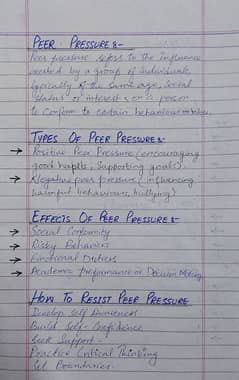 PEER PRESSURE :-
Peer pressure refers to the influence
exerted by a group of individuals,
typically of the same age, social
status or interest, on a person
to conform to certain behaviours or
TYPES OF PEER PRESSURE :-
→ Positive Peer Pressure (encouraging
good habits, supporting goals)
→ Negative peer pressure (influencing
harmful behaviours, bullying)
EFFECTS OF PEER PRESSURE :-
→ Social Conformity
→ Risky Behaviors
→ Emotional Distress
→ Academic performance or Decision Making
HOW TO RESIST PEER PRESSURE
Develop Self Awareness
Build Self-Confidence
Seek Support
Practice Critical Thinking
Set Boundaries